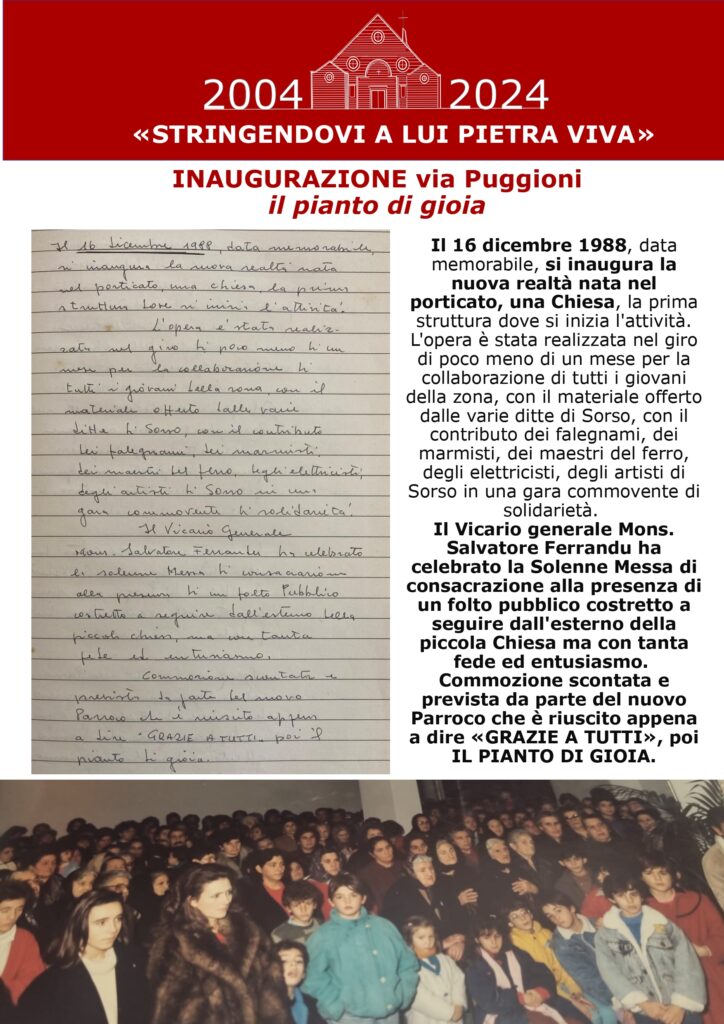 2004 2024
«STRINGENDOVI A LUI PIETRA VIVA»
INAUGURAZIONE via Puggioni
il pianto di gioia
Il 16 dicembre 1988, data memorabile,
si inaugura la nuova realtà nata
nel porticato, una chiesa, la prima
struttura dove si inizia l'attività.
L'opera è stata realiz-
zata nel giro di poco meno di un
mese per la collaborazione di
tutti i giovani della zona, con il
materiale offerto dalle varie
ditte di Sorso, con il contributo
dei falegnami, dei marmisti,
dei maestri del ferro, degli elettricisti,
degli artisti di Sorso in una
gara commovente di solidarietà.
Il Vicario Generale
Mons. Salvatore Ferrandu ha celebrato
la solenne Messa di consacrazione
alla presenza di un folto Pubblico
costretto a seguire dall'esterno della
piccola chiesa, ma con tanta
fede ed entusiasmo.
Commozione scontata e
prevista da parte del nuovo
Parroco che è riuscito appena
a dire "GRAZIE A TUTTI" poi il
pianto di gioia.
Il 16 dicembre 1988, data
memorabile, si inaugura la
nuova realtà nata nel
porticato, una Chiesa, la prima
struttura dove si inizia l'attività.
L'opera è stata realizzata nel giro
di poco meno di un mese per la
collaborazione di tutti i giovani
della zona, con il materiale offerto
dalle varie ditte di Sorso, con il
contributo dei falegnami, dei
marmisti, dei maestri del ferro,
degli elettricisti, degli artisti di
Sorso in una gara commovente di
solidarietà.
Il Vicario generale Mons.
Salvatore Ferrandu ha
celebrato la Solenne Messa di
consacrazione alla presenza di
un folto pubblico costretto a
seguire dall'esterno della
piccola Chiesa ma con tanta
fede ed entusiasmo.
Commozione scontata e
prevista da parte del nuovo
Parroco che è riuscito appena
a dire «GRAZIE A TUTTI», poi
IL PIANTO DI GIOIA.